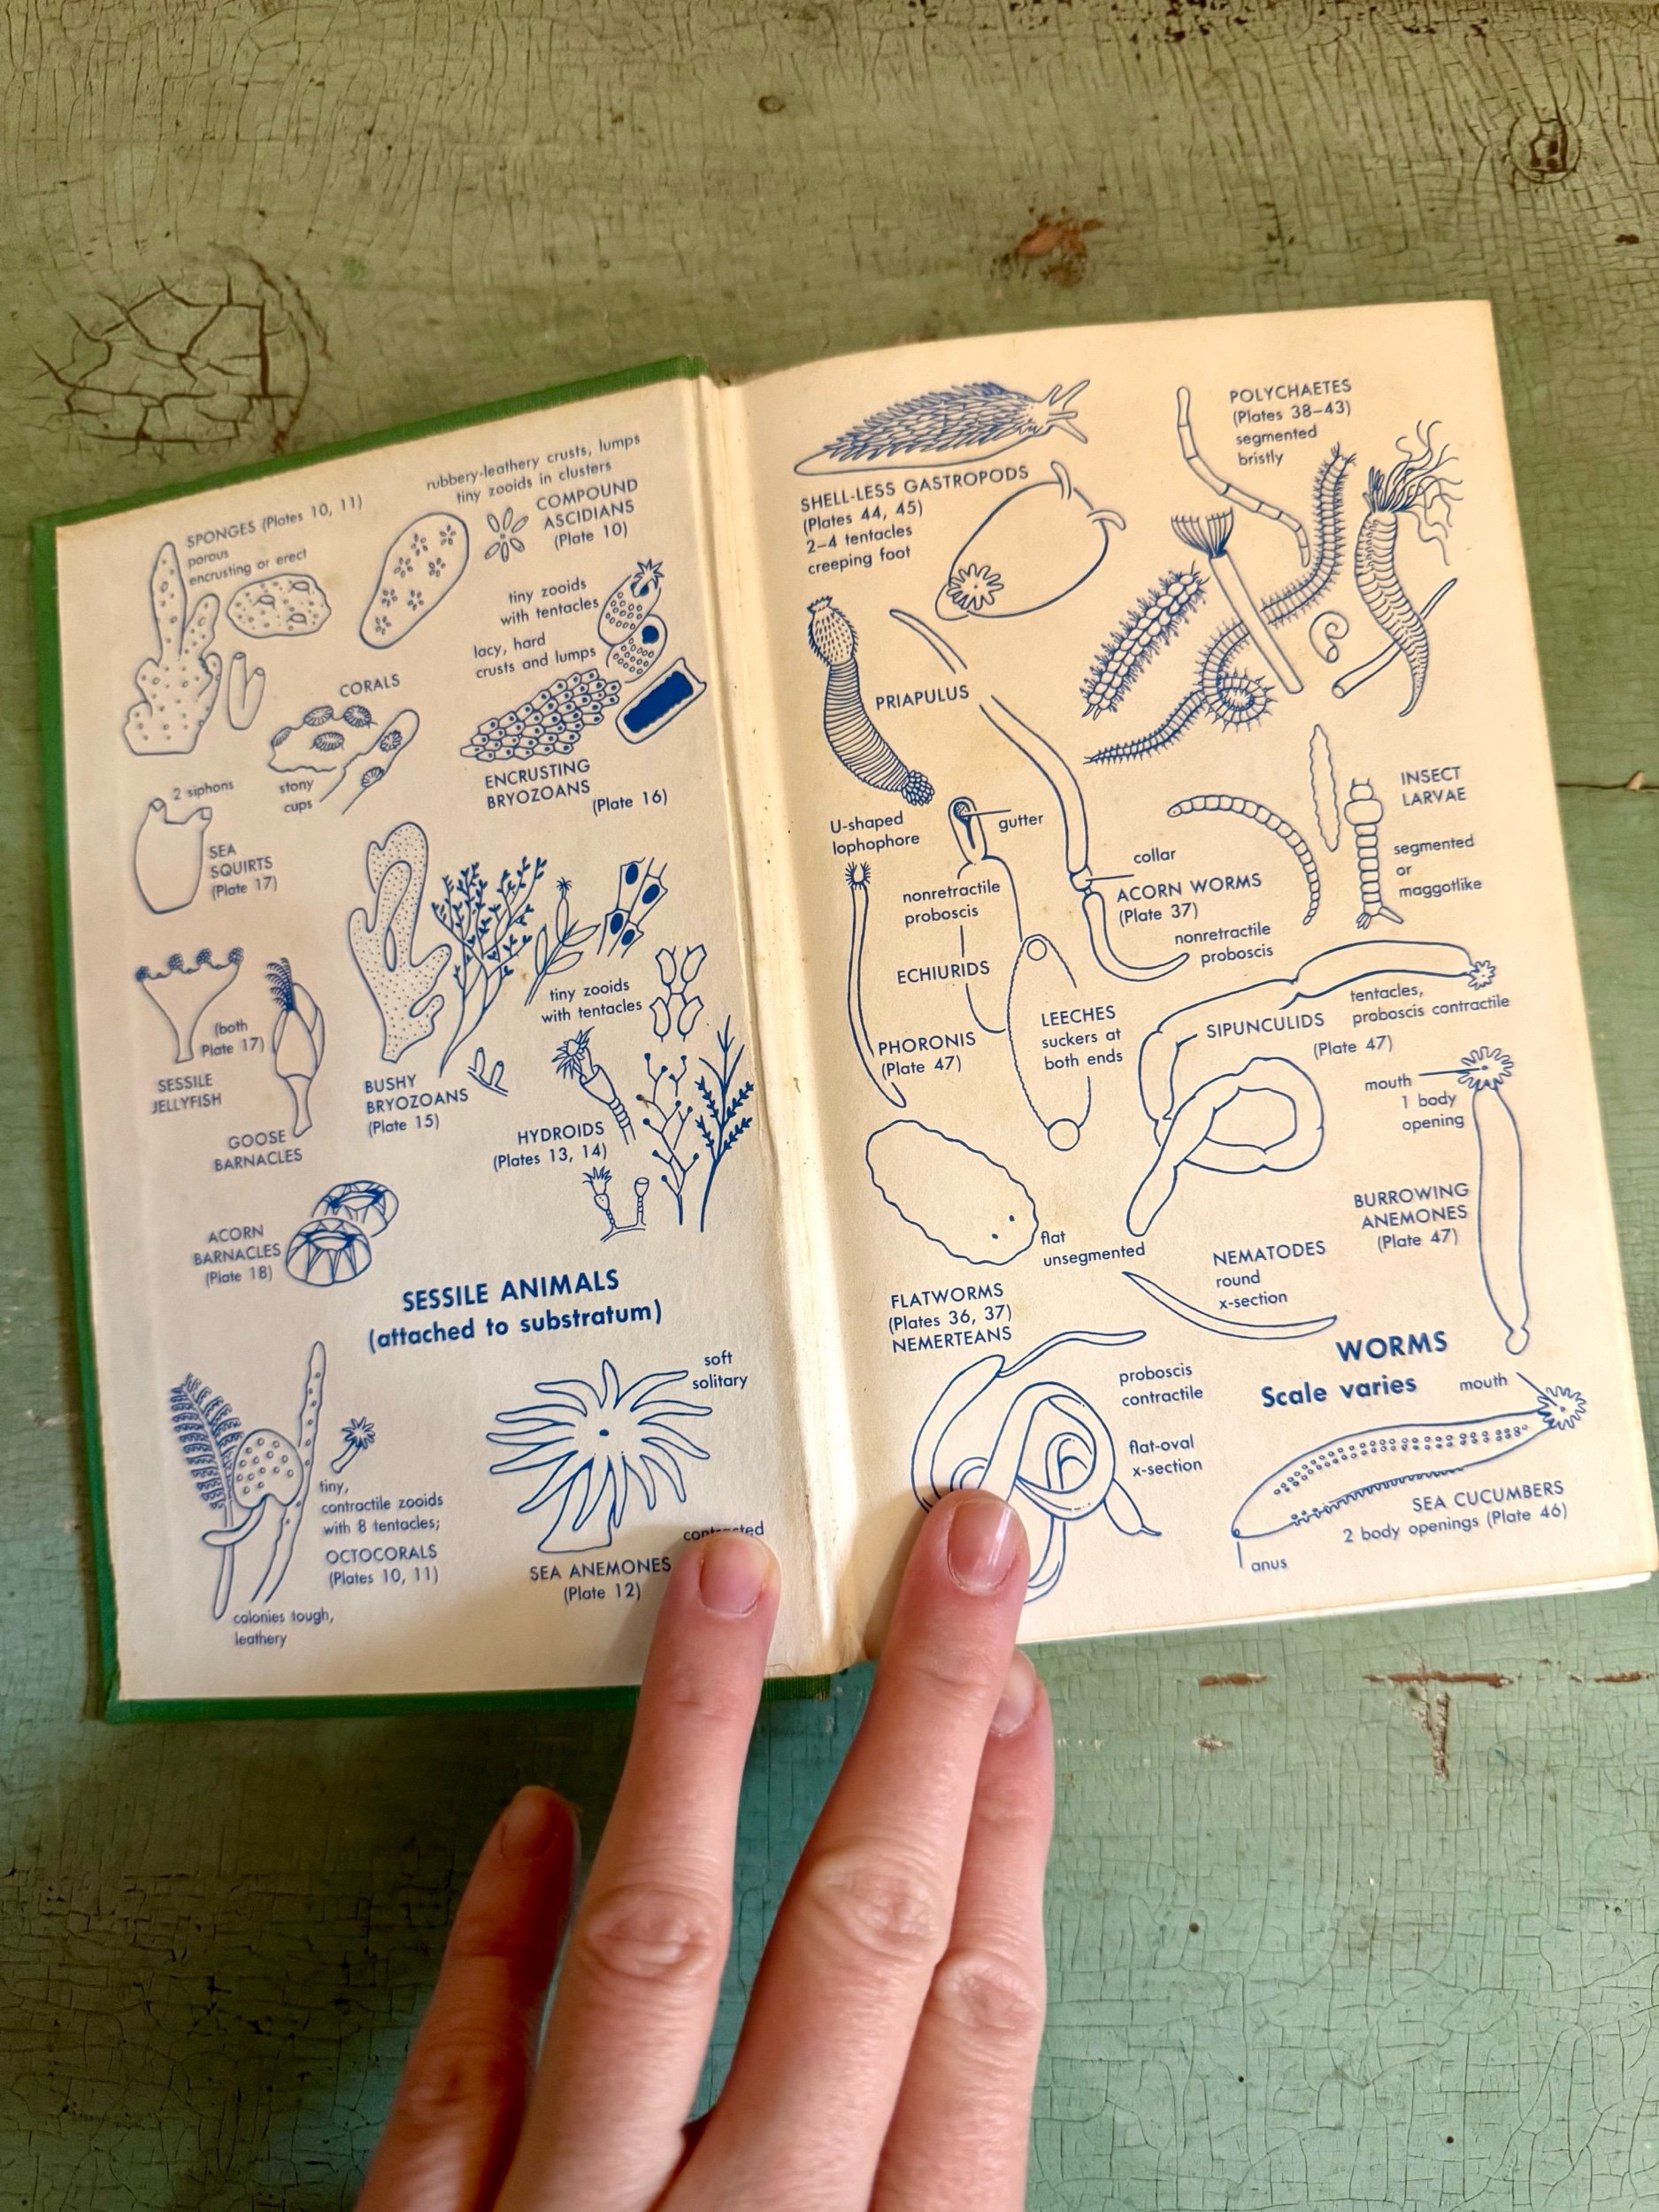 rubbery-leathery crusts, lumps
tiny zooids in clusters
SPONGES (Plates 10, 11)
porous
encrusting or erect
COMPOUND
ASCIDIANS
(Plate 10)
tiny zooids
with tentacles
lacy, hard
crusts and lumps
CORALS
stony
cups
ENCRUSTING
BRYOZOANS
(Plate 16)
2 siphons
SEA
SQUIRTS
(Plate 17)
(both
Plate 17)
SESSILE
JELLYFISH
GOOSE
BARNACLES
BUSHY
BRYOZOANS
(Plate 15)
tiny zooids
with tentacles
HYDROIDS
(Plates 13, 14)
ACORN
BARNACLES
(Plate 18)
SESSILE ANIMALS
(attached to substratum)
tiny,
contractile zooids
with 8 tentacles;
OCTOCORALS
(Plates 10, 11)
colonies tough,
leathery
soft
solitary
contracted
SEA ANEMONES
(Plate 12)
SHELL-LESS GASTROPODS
(Plates 44, 45)
2–4 tentacles
creeping foot
POLYCHAETES
(Plates 38–43)
segmented
bristly
PRIAPULUS
INSECT
LARVAE
segmented
or
maggotlike
U-shaped
lophophore
gutter
nonretractile
proboscis
ECHIURIDS
collar
ACORN WORMS
(Plate 37)
nonretractile
proboscis
PHORONIS
(Plate 47)
LEECHES
suckers at
both ends
SIPUNCULIDS
(Plate 47)
tentacles,
proboscis contractile
mouth
1 body
opening
BURROWING
ANEMONES
(Plate 47)
flat
unsegmented
FLATWORMS
(Plates 36, 37)
NEMERTEANS
NEMATODES
round
x-section
proboscis
contractile
flat-oval
x-section
WORMS
Scale varies
mouth
SEA CUCUMBERS
2 body openings (Plate 46)
anus